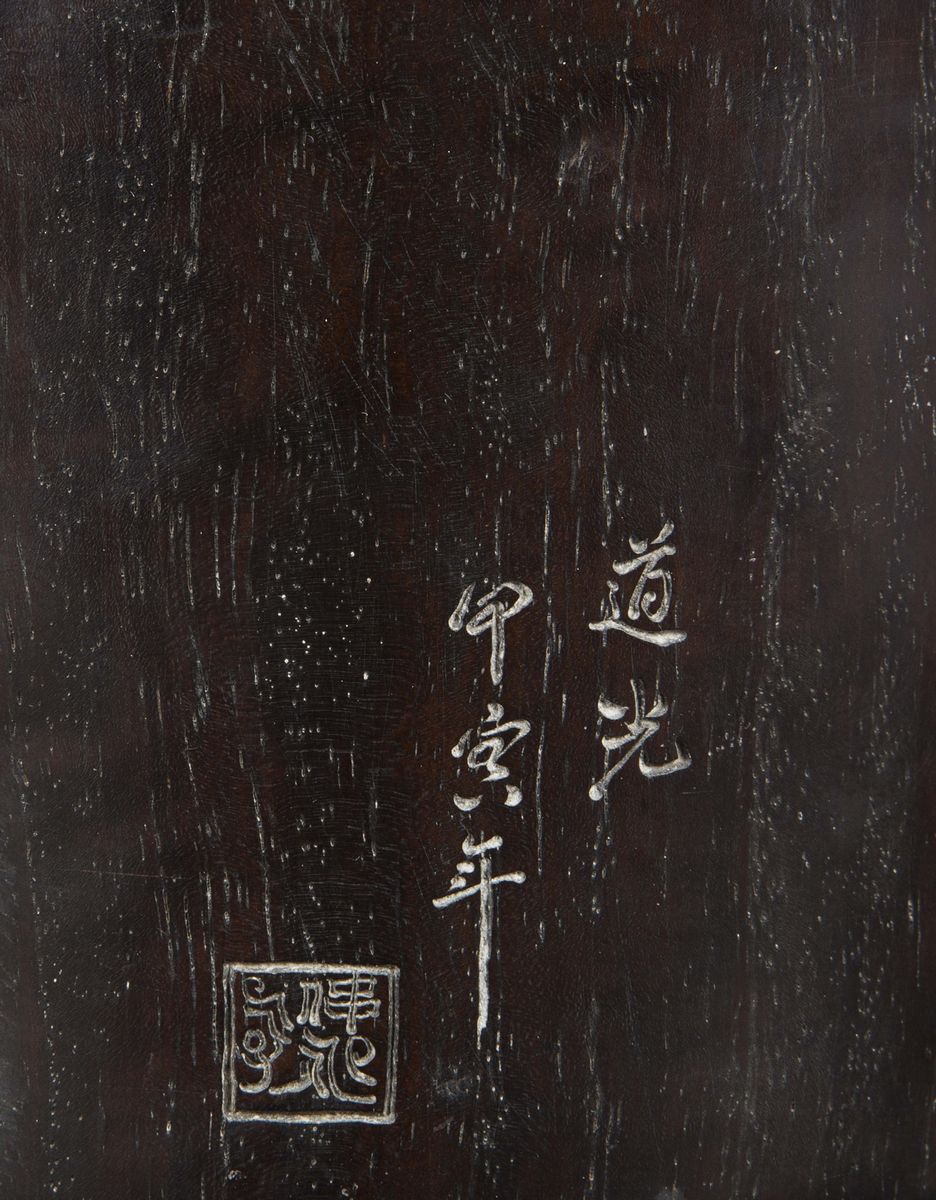 道光
甲寅年